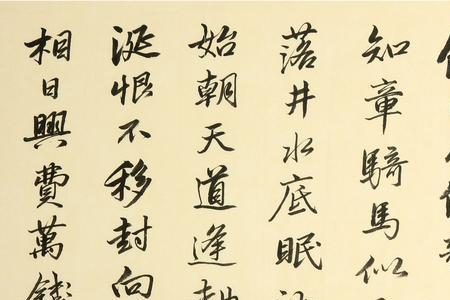 知章騎馬似
落井水底眠
始朝天道逢
涎恨不移封向
相日興費萬錢